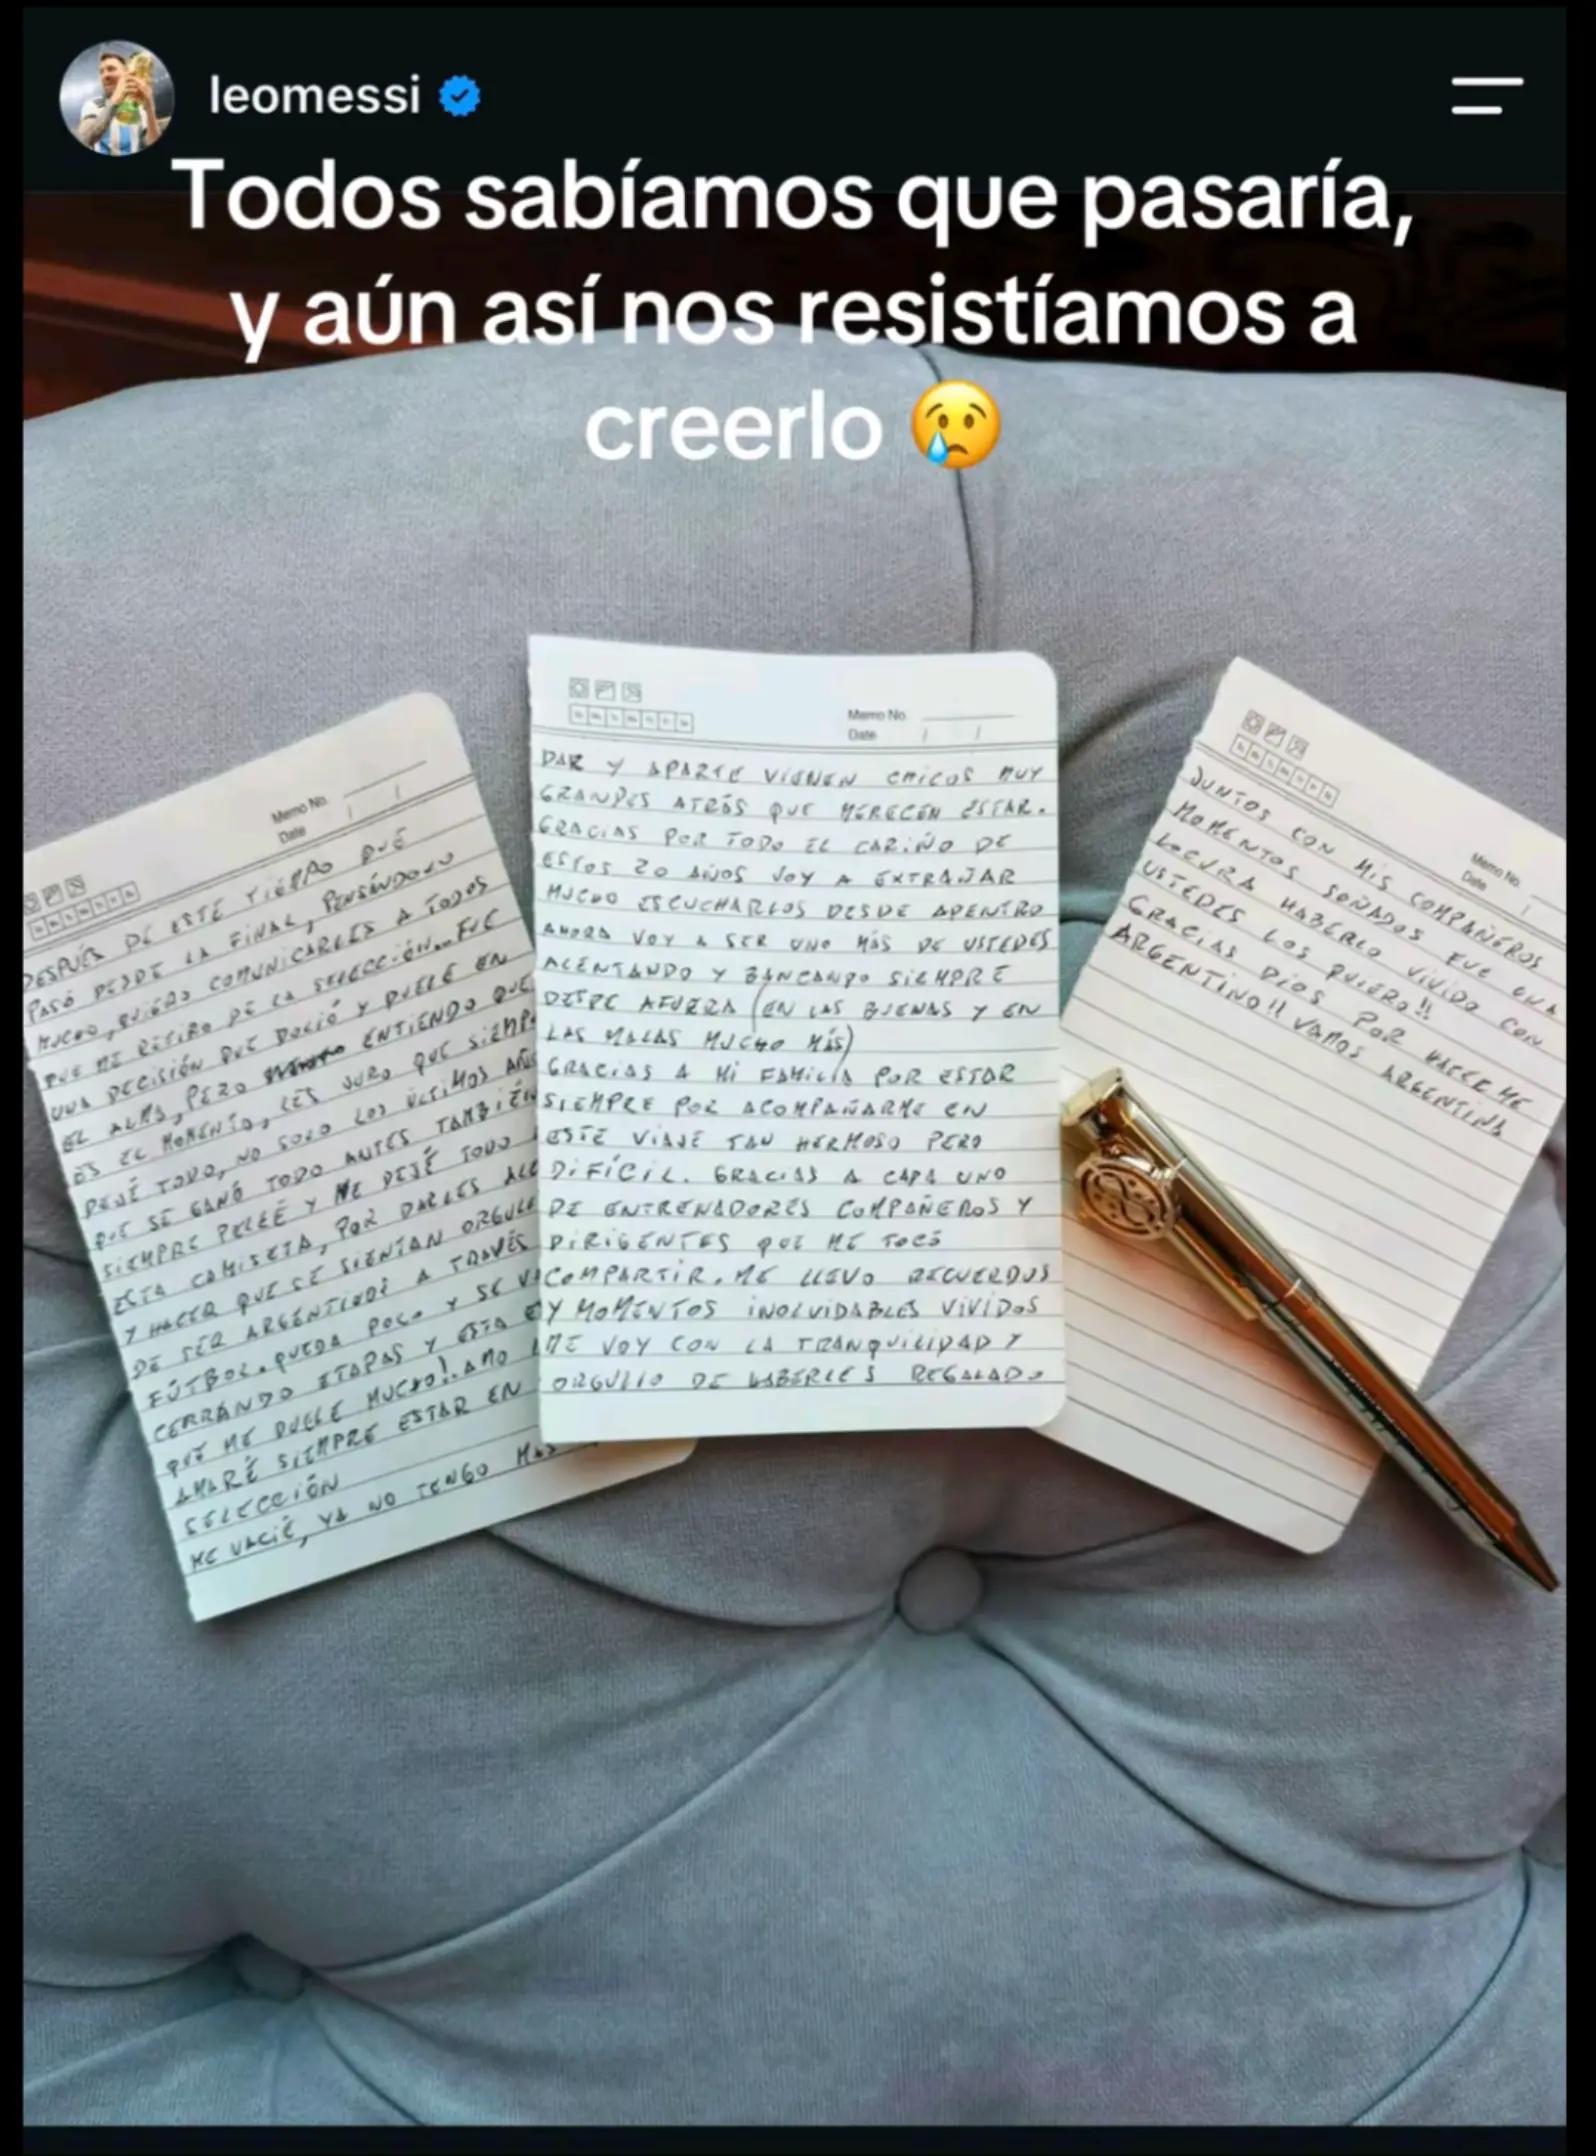 leomessi
Todos sabíamos que pasaría,
y aún así nos resistíamos a
creerlo 😢
Memo No.
Date / /
DESPUÉS DE ESTE TIEMPO QUE
PASÓ DESDE LA FINAL, PENSÁNDOLO
MUCHO, QUIERO COMUNICARLES A TODOS
QUE ME RETIRO DE LA SELECCIÓN... FUE
UNA DECISIÓN QUE DOLIÓ Y DUELE EN
EL ALMA, PERO ENTIENDO QUE
ES EL MOMENTO, LES JURO QUE SIEMP
DEJÉ TODO, NO SOLO LOS ÚLTIMOS AÑOS
QUE SE GANÓ TODO ANTES TAMBIÉN
SIEMPRE PELEÉ Y ME DEJÉ TODO
ESTA CAMISETA, POR DARLES ALE
Y HACER QUE SE SIENTAN ORGULL
DE SER ARGENTINOS A TRAVÉS
FÚTBOL. QUEDA POCO Y SE VA
CERRANDO ETAPAS Y ESTA E
QUE ME DUELE MUCHO!. AMO
AMARÉ SIEMPRE ESTAR EN
SELECCIÓN
ME VACIÉ, YA NO TENGO MÁS
Memo No.
Date / /
DAR Y APARTE VIENEN CHICOS MUY
GRANDES ATRÁS QUE MERECEN ESTAR.
GRACIAS POR TODO EL CARIÑO DE
ESTOS 20 AÑOS VOY A EXTRAÑAR
MUCHO ESCUCHARLOS DESDE ADENTRO
AHORA VOY A SER UNO MÁS DE USTEDES
ALENTANDO Y BANCANDO SIEMPRE
DESDE AFUERA (EN LAS BUENAS Y EN
LAS MALAS MUCHO MÁS)
GRACIAS A MI FAMILIA POR ESTAR
SIEMPRE POR ACOMPAÑARME EN
ESTE VIAJE TAN HERMOSO PERO
DIFÍCIL. GRACIAS A CADA UNO
DE ENTRENADORES COMPAÑEROS Y
DIRIGENTES QUE ME TOCÓ
COMPARTIR. ME LLEVO RECUERDOS
Y MOMENTOS INOLVIDABLES VIVIDOS
ME VOY CON LA TRANQUILIDAD Y
ORGULLO DE HABERLES REGALADO
Memo No.
Date /
JUNTOS CON MIS COMPAÑEROS
MOMENTOS SOÑADOS FUE UNA
LOCURA HABERLO VIVIDO CON
USTEDES LOS QUIERO!!
GRACIAS DIOS POR HACERME
ARGENTINO!! VAMOS ARGENTINA